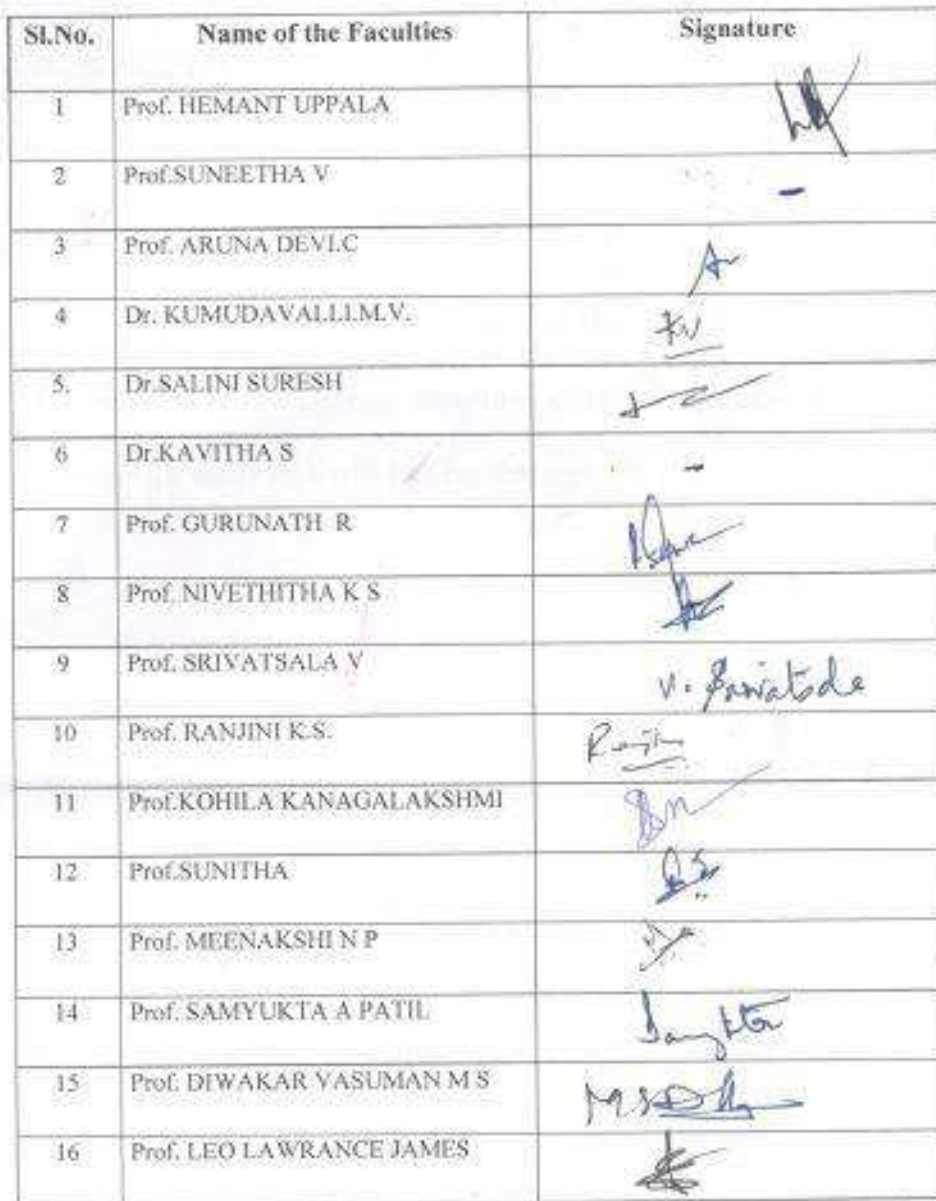 Sl.No. Name of the Faculties Signature
1 Prof. HEMANT UPPALA
2 Prof.SUNEETHA V -
3 Prof. ARUNA DEVI.C
4 Dr. KUMUDAVALLI.M.V.
5. Dr.SALINI SURESH
6 Dr.KAVITHA S -
7 Prof. GURUNATH R
8 Prof. NIVETHITHA K S
9 Prof. SRIVATSALA V V.
10 Prof. RANJINI K.S.
11 Prof.KOHILA KANAGALAKSHMI
12 Prof.SUNITHA
13 Prof. MEENAKSHI N P
14 Prof. SAMYUKTA A PATIL
15 Prof. DIWAKAR VASUMAN M S
16 Prof. LEO LAWRANCE JAMES